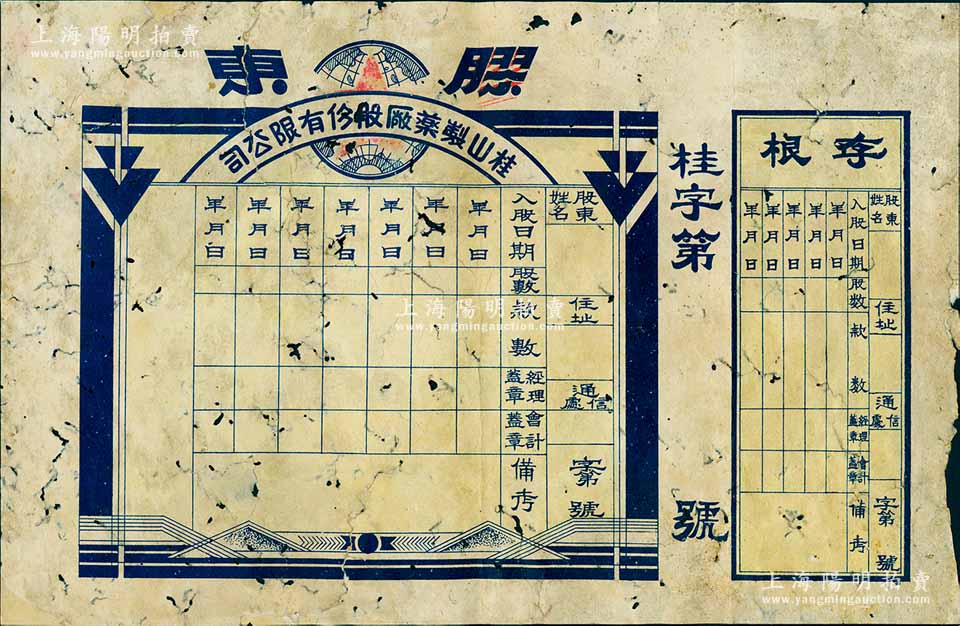 上海陽明拍賣
www.yangmingauction.com
膠東
桂山製藥廠股份有限公司
股東姓名
住址
通信處
字第 號
入股日期
股數
款數
經理蓋章
會計蓋章
備考
年月日
年月日
年月日
年月日
年月日
年月日
桂字第 號
存根
股東姓名
住址
通信處
字第 號
入股日期
股数
款数
經理蓋章
會計蓋章
備考
年月日
年月日
年月日
年月日
年月日
上海陽明拍賣
www.yangmingauction.com
上海陽明拍賣
www.yangmingauction.com